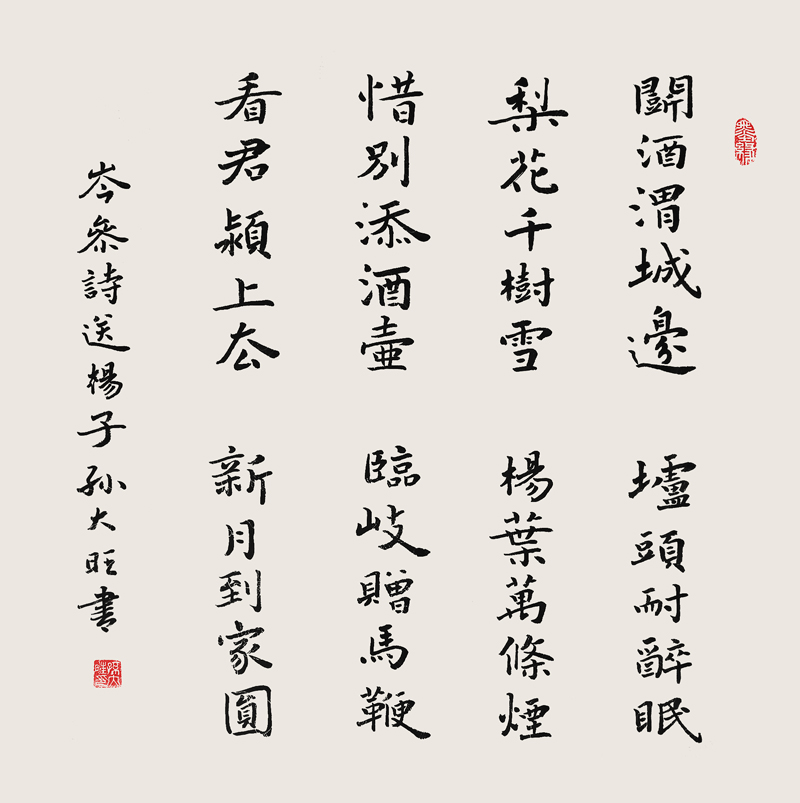 鬭酒渭城邊　壚頭耐醉眠
梨花千樹雪　楊葉萬條煙
惜別添酒壺　臨岐贈馬鞭
看君潁上去　新月到家圓
岑參詩送楊子孙大旺書